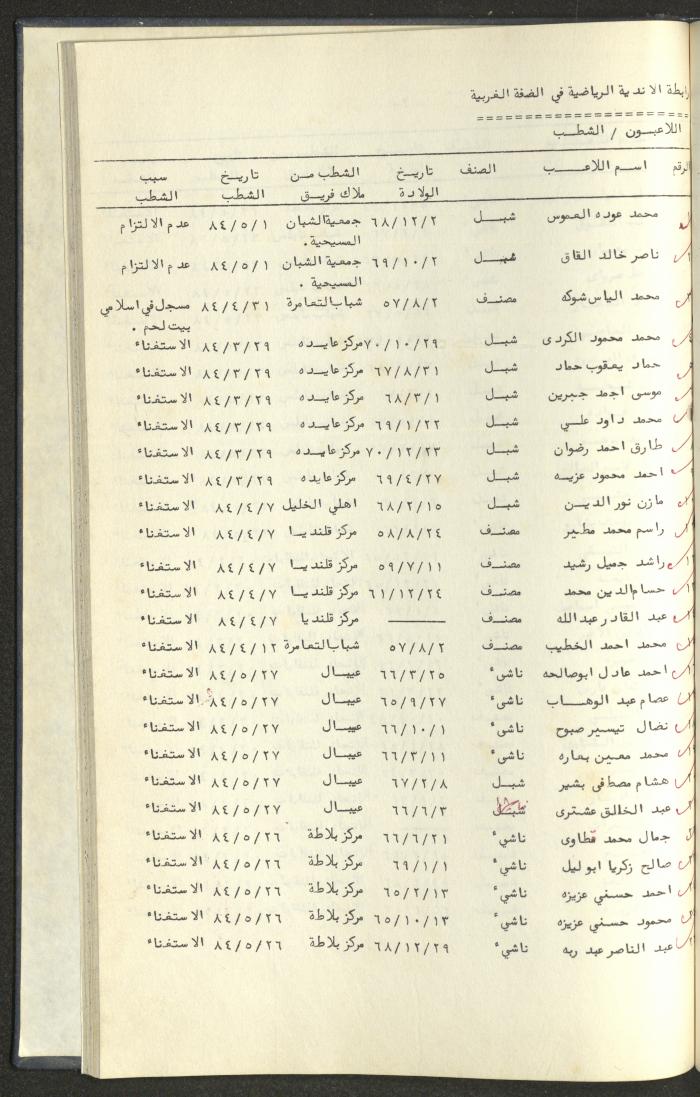 رابطة الاندية الرياضية في الضفة الغربية
اللاعبون / الشطب
الرقم اسم اللاعب الصنف تاريخ الولادة الشطب من ملاك فريق تاريخ الشطب سبب الشطب
محمد عوده العموس شبل ٦٨/١٢/٢ جمعية الشبان المسيحية. ٨٤/٥/١ عدم الالتزام
ناصر خالد القاق شبل ٦٩/١٠/٢ جمعية الشبان المسيحية . ٨٤/٥/١ عدم الالتزام
محمد الياس شوكه مصنف ٥٧/٨/٢ شباب التعامرة ٨٤/٤/٣١ مسجل في اسلامي بيت لحم .
محمد محمود الكردى شبل ٧٠/١٠/٢٩ مركز عايده ٨٤/٣/٢٩ الاستغناء
حماد يعقوب حماد شبل ٦٧/٨/٣١ مركز عايده ٨٤/٣/٢٩ الاستغناء
موسى احمد جبرين شبل ٦٨/٣/١ مركز عايده ٨٤/٣/٢٩ الاستغناء
محمد داود علي شبل ٦٩/١/٢٢ مركز عايده ٨٤/٣/٢٩ الاستغناء
طارق احمد رضوان شبل ٧٠/١٢/٢٣ مركز عايده ٨٤/٣/٢٩ الاستغناء
احمد محمود عزيه شبل ٦٩/٤/٢٧ مركز عايده ٨٤/٣/٢٩ الاستغناء
مازن نور الدين شبل ٦٨/٢/١٥ اهلي الخليل ٨٤/٤/٧ الاستغناء
راسم محمد مطير مصنف ٥٨/٨/٢٤ مركز قلنديا ٨٤/٤/٧ الاستغناء
راشد جميل رشيد مصنف ٥٩/٧/١١ مركز قلنديا ٨٤/٤/٧ الاستغناء
حسام الدين محمد مصنف ٦١/١٢/٢٤ مركز قلنديا ٨٤/٤/٧ الاستغناء
عبد القادر عبدالله مصنف ——— مركز قلنديا ٨٤/٤/٧ الاستغناء
محمد احمد الخطيب مصنف ٥٧/٨/٢ شباب التعامرة ٨٤/٤/١٢ الاستغناء
احمد عادل ابوصالحه ناشيء ٦٦/٣/٢٥ عيبال ٨٤/٥/٢٧ الاستغناء
عصام عبد الوهاب ناشيء ٦٥/٩/٢٧ عيبال ٨٤/٥/٢٧ الاستغناء
نضال تيسير صبوح ناشيء ٦٦/١٠/١ عيبال ٨٤/٥/٢٧ الاستغناء
محمد معين بعاره ناشيء ٦٦/٣/١١ عيبال ٨٤/٥/٢٧ الاستغناء
هشام مصطفى بشير شبل ٦٧/٢/٨ عيبال ٨٤/٥/٢٧ الاستغناء
عبد الخالق عشترى شبل ٦٦/٦/٣ عيبال ٨٤/٥/٢٧ الاستغناء
جمال محمد قطاوى ناشيء ٦٦/٦/٢١ مركز بلاطة ٨٤/٥/٢٦ الاستغناء
صالح زكريا ابو ليل ناشيء ٦٩/١/١ مركز بلاطة ٨٤/٥/٢٦ الاستغناء
احمد حسني عزيزه ناشيء ٦٥/٢/١٣ مركز بلاطة ٨٤/٥/٢٦ الاستغناء
محمود حسني عزيزه ناشيء ٦٥/١٠/١٣ مركز بلاطة ٨٤/٥/٢٦ الاستغناء
عبد الناصر عبد ربه ناشيء ٦٨/١٢/٢٩ مركز بلاطة ٨٤/٥/٢٦ الاستغناء